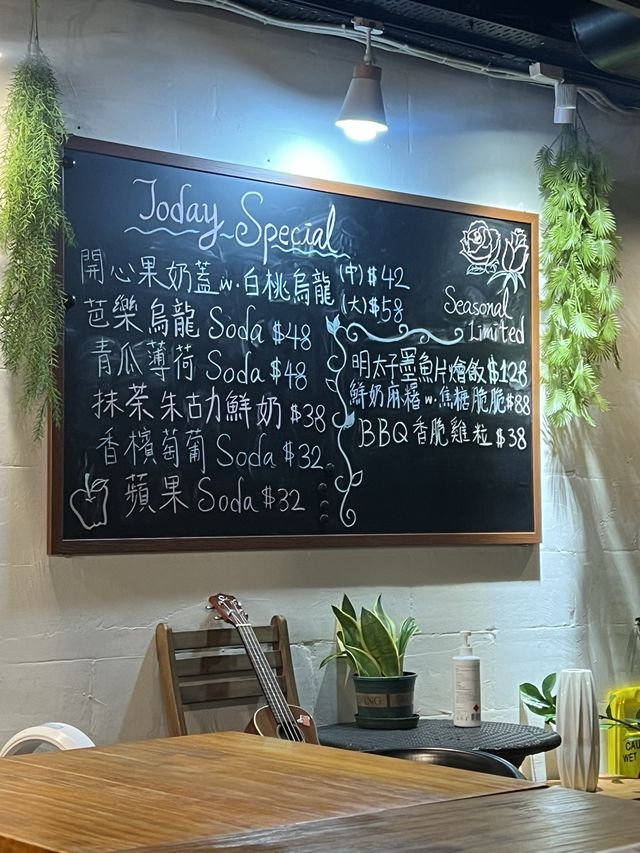 Today Special
開心果奶蓋 w. 白桃烏龍 (中) $42
(大) $58
芭樂烏龍 Soda $48
青瓜薄荷 Soda $48
抹茶朱古力鮮奶 $38
香檳萄葡 Soda $32
蘋果 Soda $32
Seasonal
Limited
明太子墨魚片燴飯 $128
鮮奶麻糬 w. 焦糖脆脆 $88
BBQ 香脆雞粒 $38
CAU
WET